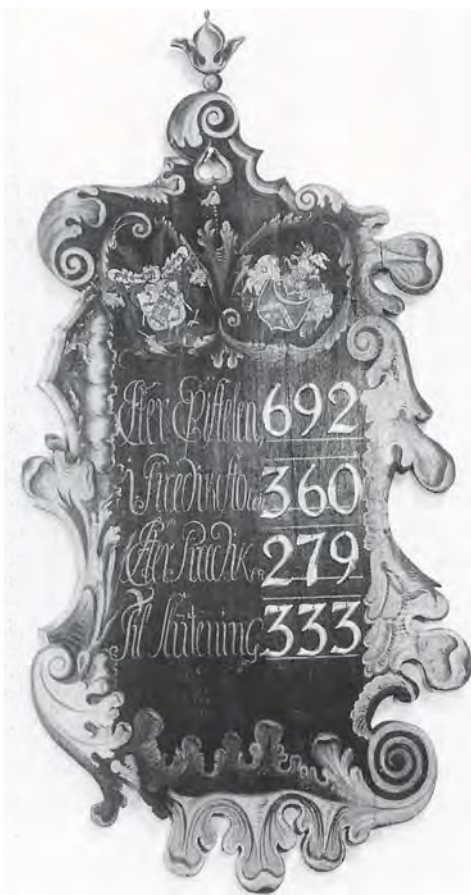 Efter Epistelen 692
i Prædikstolen 360
Efter Prædiken 279
Til Slutening 333